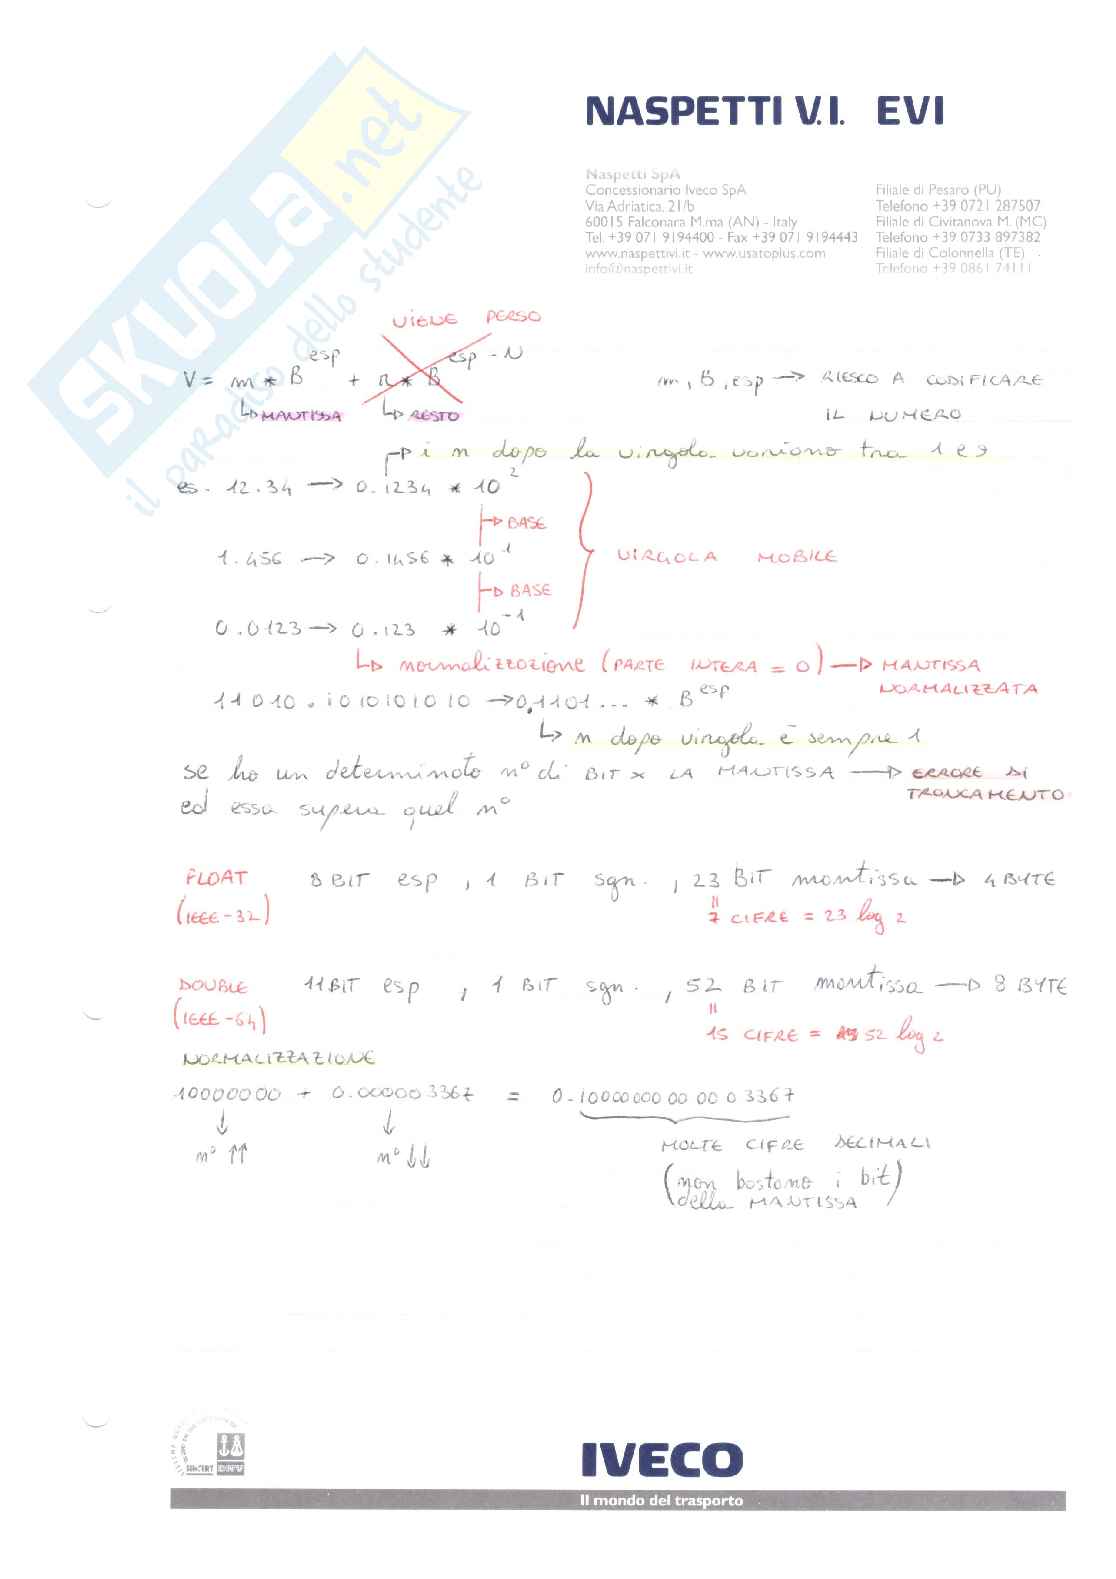 SKUOLA.net
il paradiso dello studente
NASPETTI V.I. EVI
Naspetti SpA
Concessionario Iveco SpA
Via Adriatica, 21/b
60015 Falconara M.ma (AN) - Italy
Tel. +39 071 9194400 - Fax +39 071 9194443
www.naspettivi.it - www.usatoplus.com
info@naspettivi.it
Filiale di Pesaro (PU)
Telefono +39 0721 287507
Filiale di Civitanova M. (MC)
Telefono +39 0733 897382
Filiale di Colonnella (TE)
Telefono +39 0861 74111
VIENE PERSO
V = m * B^esp + R * B^esp-N
m, B, esp → RIESCO A CODIFICARE
↳ MANTISSA ↳ RESTO
IL NUMERO
→ i n dopo la virgola variano tra 1 e 9
es. 12.34 → 0.1234 * 10^2
→ BASE
1.456 → 0.1456 * 10^1
VIRGOLA MOBILE
→ BASE
0.0123 → 0.123 * 10^-1
↳ normalizzazione (PARTE INTERA = 0) → MANTISSA
NORMALIZZATA
11010.1010101010 → 0,1101... * B^esp
↳ n dopo virgola è sempre 1
se ho un determinato n° di BIT x LA MANTISSA → ERRORE DI
TRONCAMENTO
ed essa supera quel n°
FLOAT 8 BIT esp, 1 BIT sgn., 23 BIT mantissa → 4 BYTE
(IEEE-32) 7 CIFRE = 23 log 2
DOUBLE 11 BIT esp, 1 BIT sgn., 52 BIT mantissa → 8 BYTE
(IEEE-64) 15 CIFRE = 52 log 2
NORMALIZZAZIONE
10000000 + 0.000003367 = 0.10000000000003367
n° ↑↑ n° ↓↓
MOLTE CIFRE DECIMALI
(non bastano i bit)
della MANTISSA
IVECO
Il mondo del trasporto